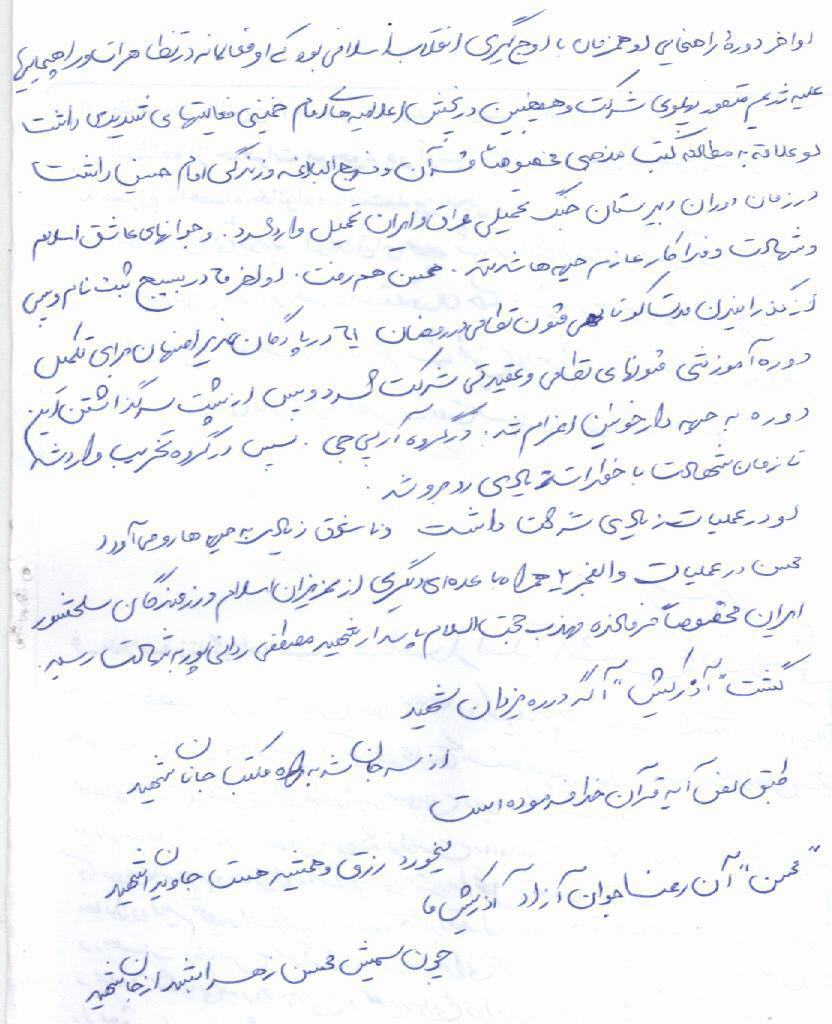 اواخر دورهٔ راهنمایی او همزمان با اوج گیری انقلاب اسلامی بود که او فعالانه در تظاهرات و راهپیماییها
علیه رژیم منفور پهلوی شرکت و همچنین در پخش اعلامیه های امام خمینی فعالیتهای شدیدی داشت
او علاقه به مطالعه کتب مذهبی مخصوصاً قرآن و نهج البلاغه و زندگی امام حسین داشت
در زمان دوران دبیرستان جنگ تحمیلی عراق و ایران تحمیل وارد شد. و جوانهای عاشق اسلام
و شهادت و فداکار عازم جبهه ها شدند. محسن هم رفت. او اواخر در بسیج ثبت نام و پس
از گذرانیدن مدت کوتاهی فنون نظامی در رمضان در پادگان غدیر اصفهان برای تکمیل
دوره آموزشی فنونهای نظامی و عقیدتی شرکت کرد و پس از پشت سر گذاشتن این
دوره به جبهه دارخوئین اعزام شد. در گروه آرپی جی. سپس در گروه تخریب وارد شد
تا زمان شهادت با خطرات زیادی روبرو شد.
او در عملیات زیادی شرکت داشت و با شوق زیادی به جبهه ها رو می آورد
محسن در عملیات والفجر ۲ همراه با عده ای دیگری از عزیزان اسلام و رزمندگان سلحشور
ایران مخصوصاً فرمانده مهذب حجت السلام پاسدار شهید مصطفی ردانی پور به شهادت رسید.
گشت "آذرکیش" آگه در ره یزدان شهید
از سر جان شد به راه مکتب جانان شهید
طبق نص آیه قرآن خدا فرموده است
میخورد رزق و همیشه هست جاویدان شهید
"محسن" آن رعنا جوان آزاد آذرکیش ما
چون سمیش محسن زهرا شد از جان شهید